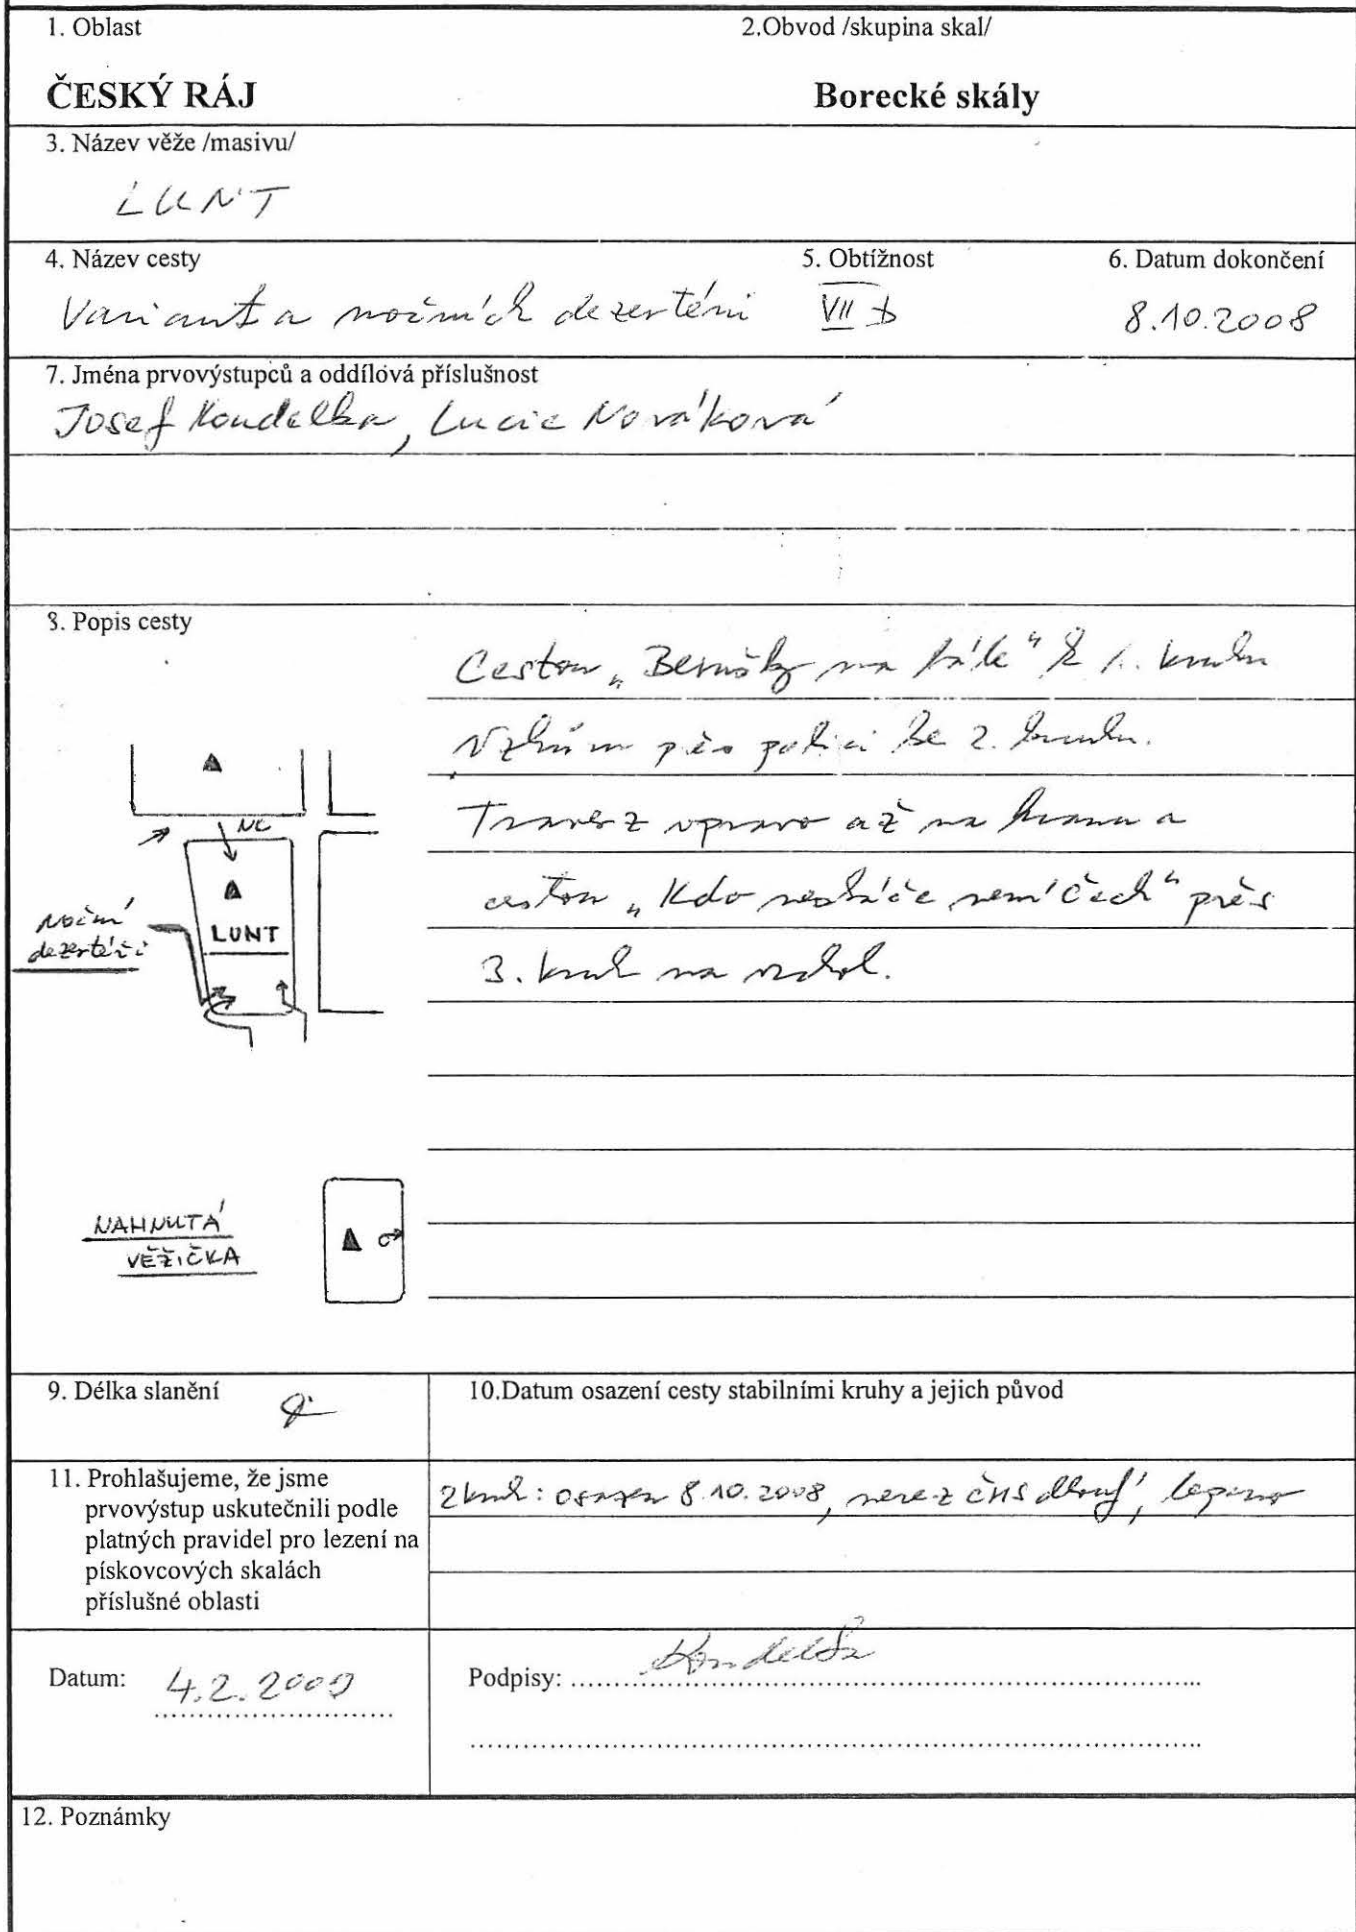 1. Oblast
2.Obvod /skupina skal/
ČESKÝ RÁJ
Borecké skály
3. Název věže /masivu/
LUNT
4. Název cesty
5. Obtížnost
6. Datum dokončení
Varianta nočních dezertérů
VII b
8.10.2008
7. Jména prvovýstupců a oddílová příslušnost
Josef Koudelka, Lucie Nováková
8. Popis cesty
Cestou „Berušky na " k 1. kruhu
Vzhůru přes polici ke 2. kruhu.
Traverz vpravo až na hranu a
cestou „Kdo neskáče není Čech" přes
3. kruh na vrchol.
NC
LUNT
Noční
dezertéři
NAHNUTÁ
VĚŽIČKA
9. Délka slanění
10.Datum osazení cesty stabilními kruhy a jejich původ
11. Prohlašujeme, že jsme
prvovýstup uskutečnili podle
platných pravidel pro lezení na
pískovcových skalách
příslušné oblasti
2 kruh: osazen 8.10.2008, nerez ČHS dlouhý, lepeno
Datum: 4.2.2009
Podpisy: Koudelka
12. Poznámky